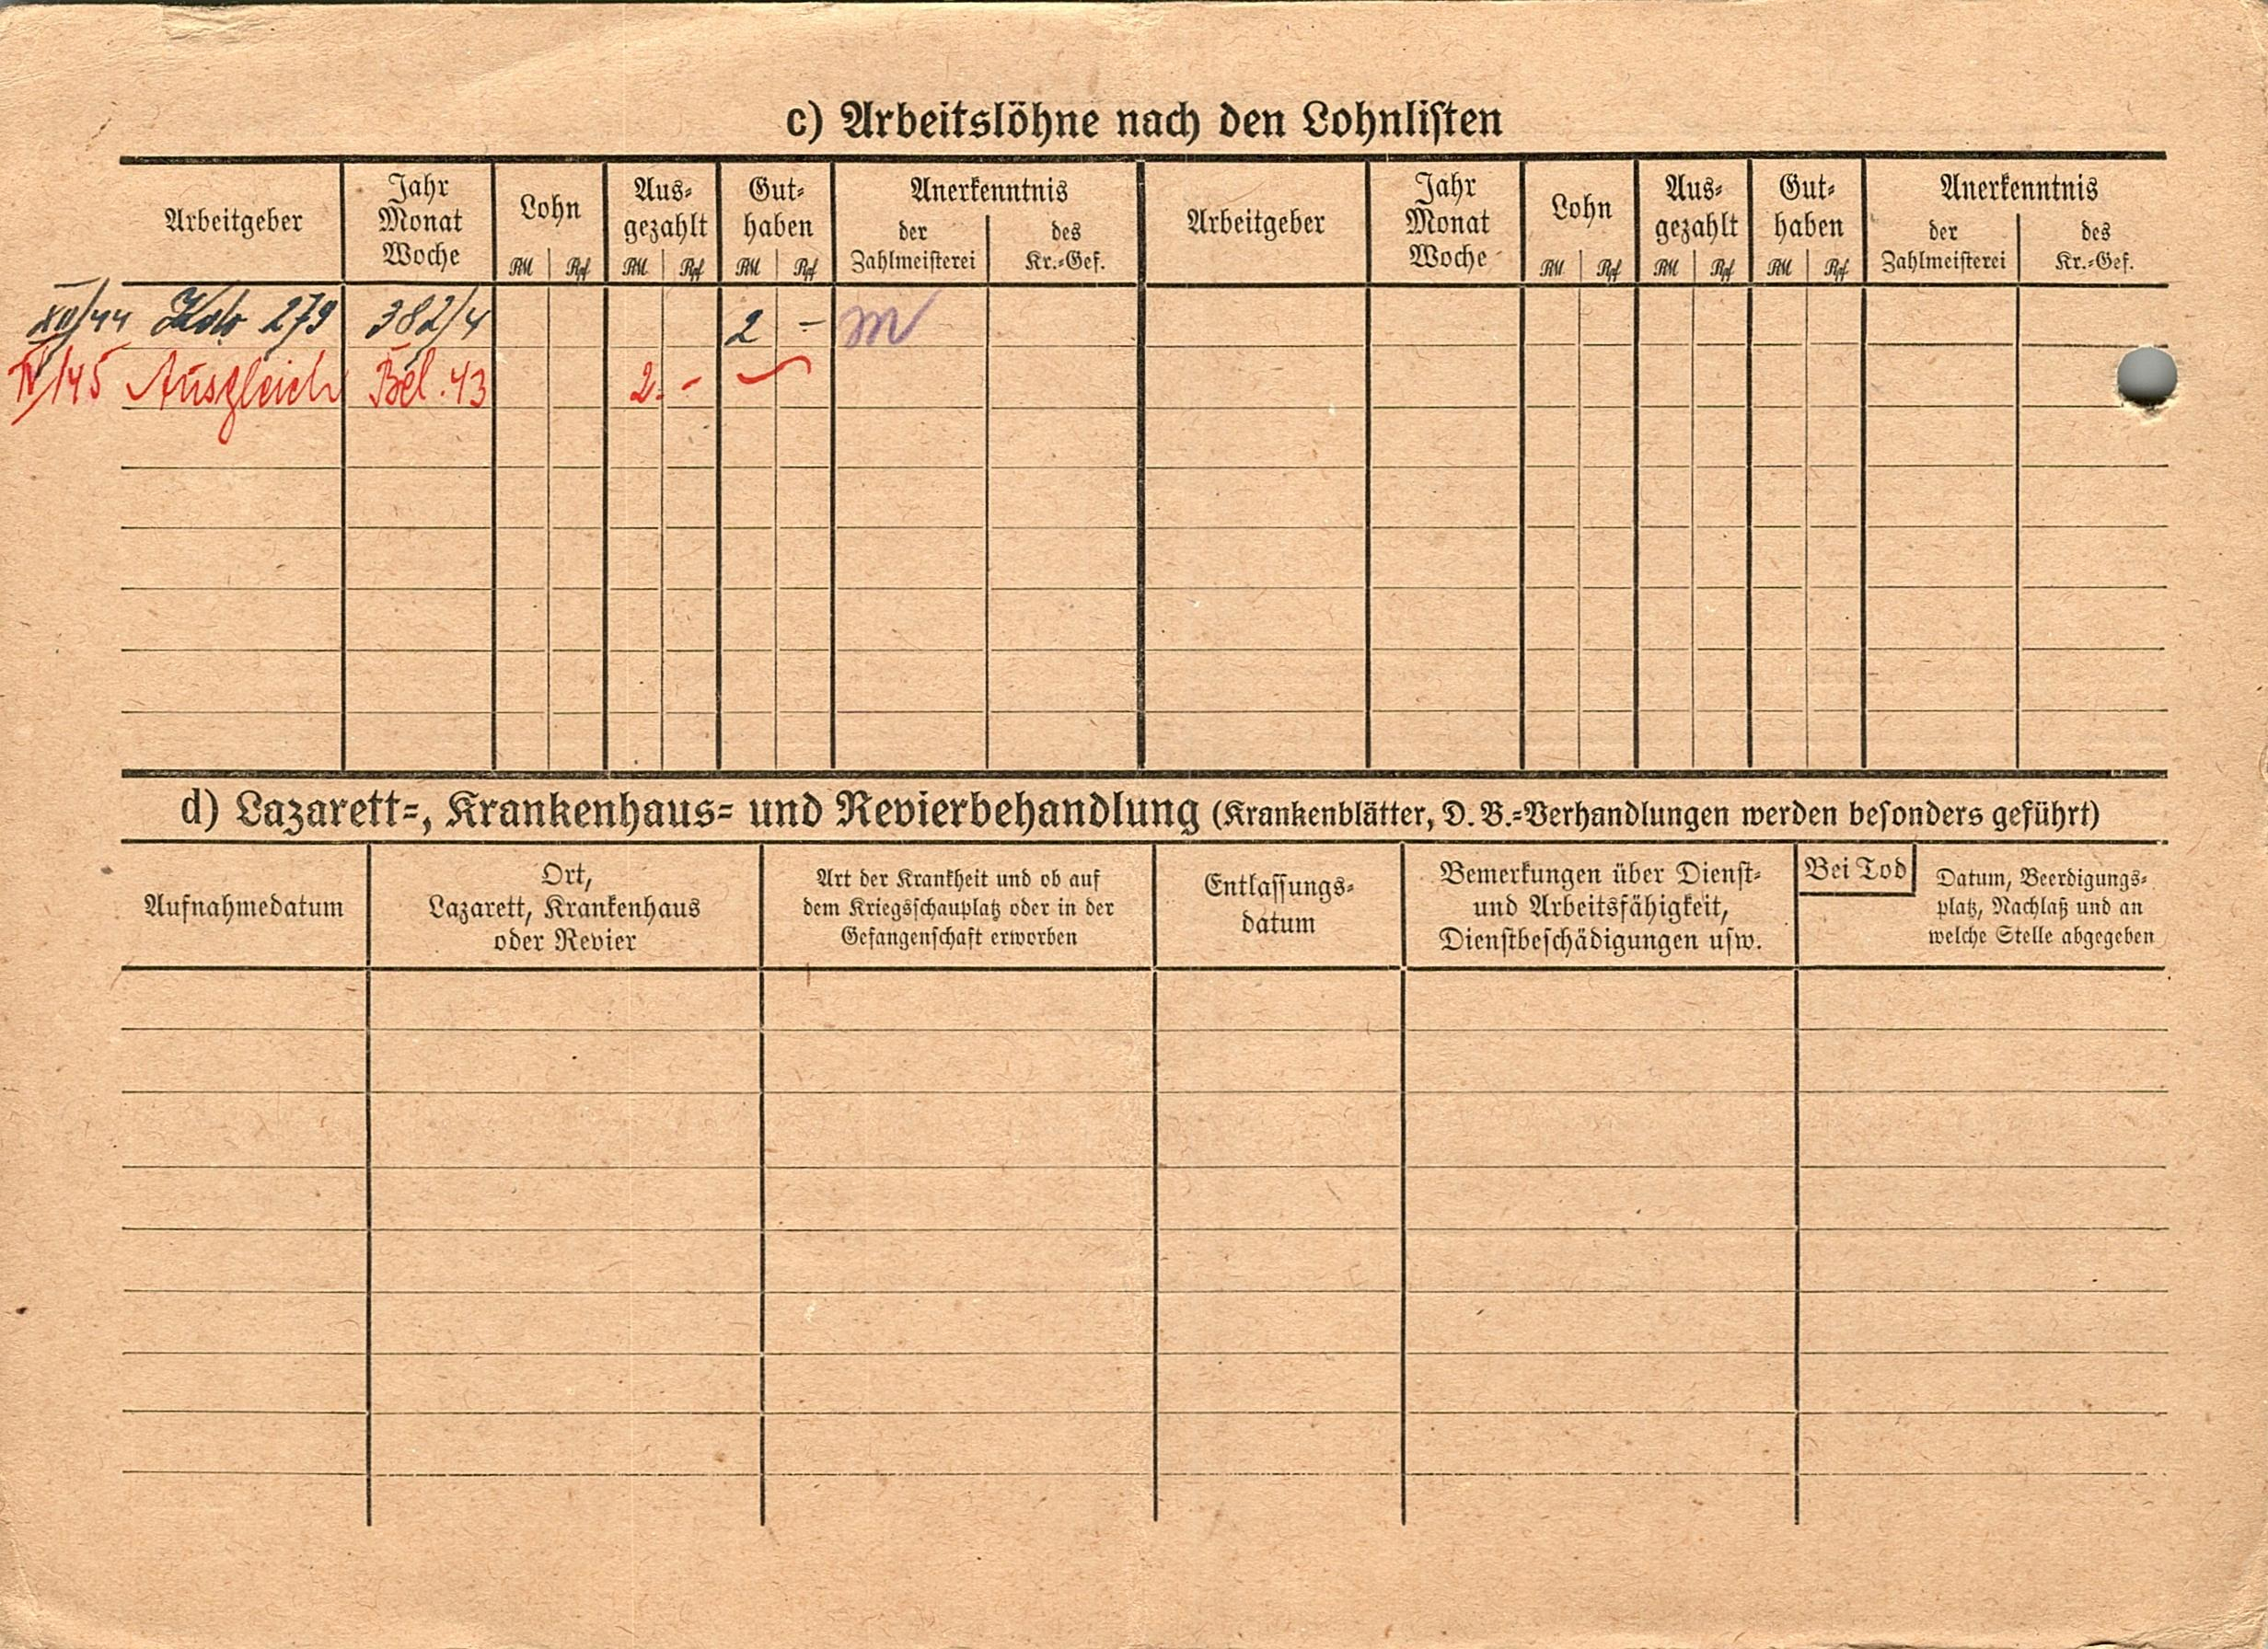 c) Arbeitslöhne nach den Lohnlisten
Arbeitgeber Jahr Monat Woche Lohn RM Rpf Aus-gezahlt RM Rpf Gut-haben RM Rpf Anerkenntnis der Zahlmeisterei des Kr.-Gef. Arbeitgeber Jahr Monat Woche Lohn RM Rpf Aus-gezahlt RM Rpf Gut-haben RM Rpf Anerkenntnis der Zahlmeisterei des Kr.-Gef.
XII/44 Kdo 279 382/4 2 -
IV/45 Ausgleich Bel. 43 2. -
d) Lazarett-, Krankenhaus- und Revierbehandlung (Krankenblätter, D. B.-Verhandlungen werden besonders geführt)
Aufnahmedatum
Ort,
Lazarett, Krankenhaus
oder Revier
Art der Krankheit und ob auf
dem Kriegsschauplatz oder in der
Gefangenschaft erworben
Entlassungs-
datum
Bemerkungen über Dienst-
und Arbeitsfähigkeit,
Dienstbeschädigungen usw.
Bei Tod
Datum, Beerdigungs-
platz, Nachlaß und an
welche Stelle abgegeben